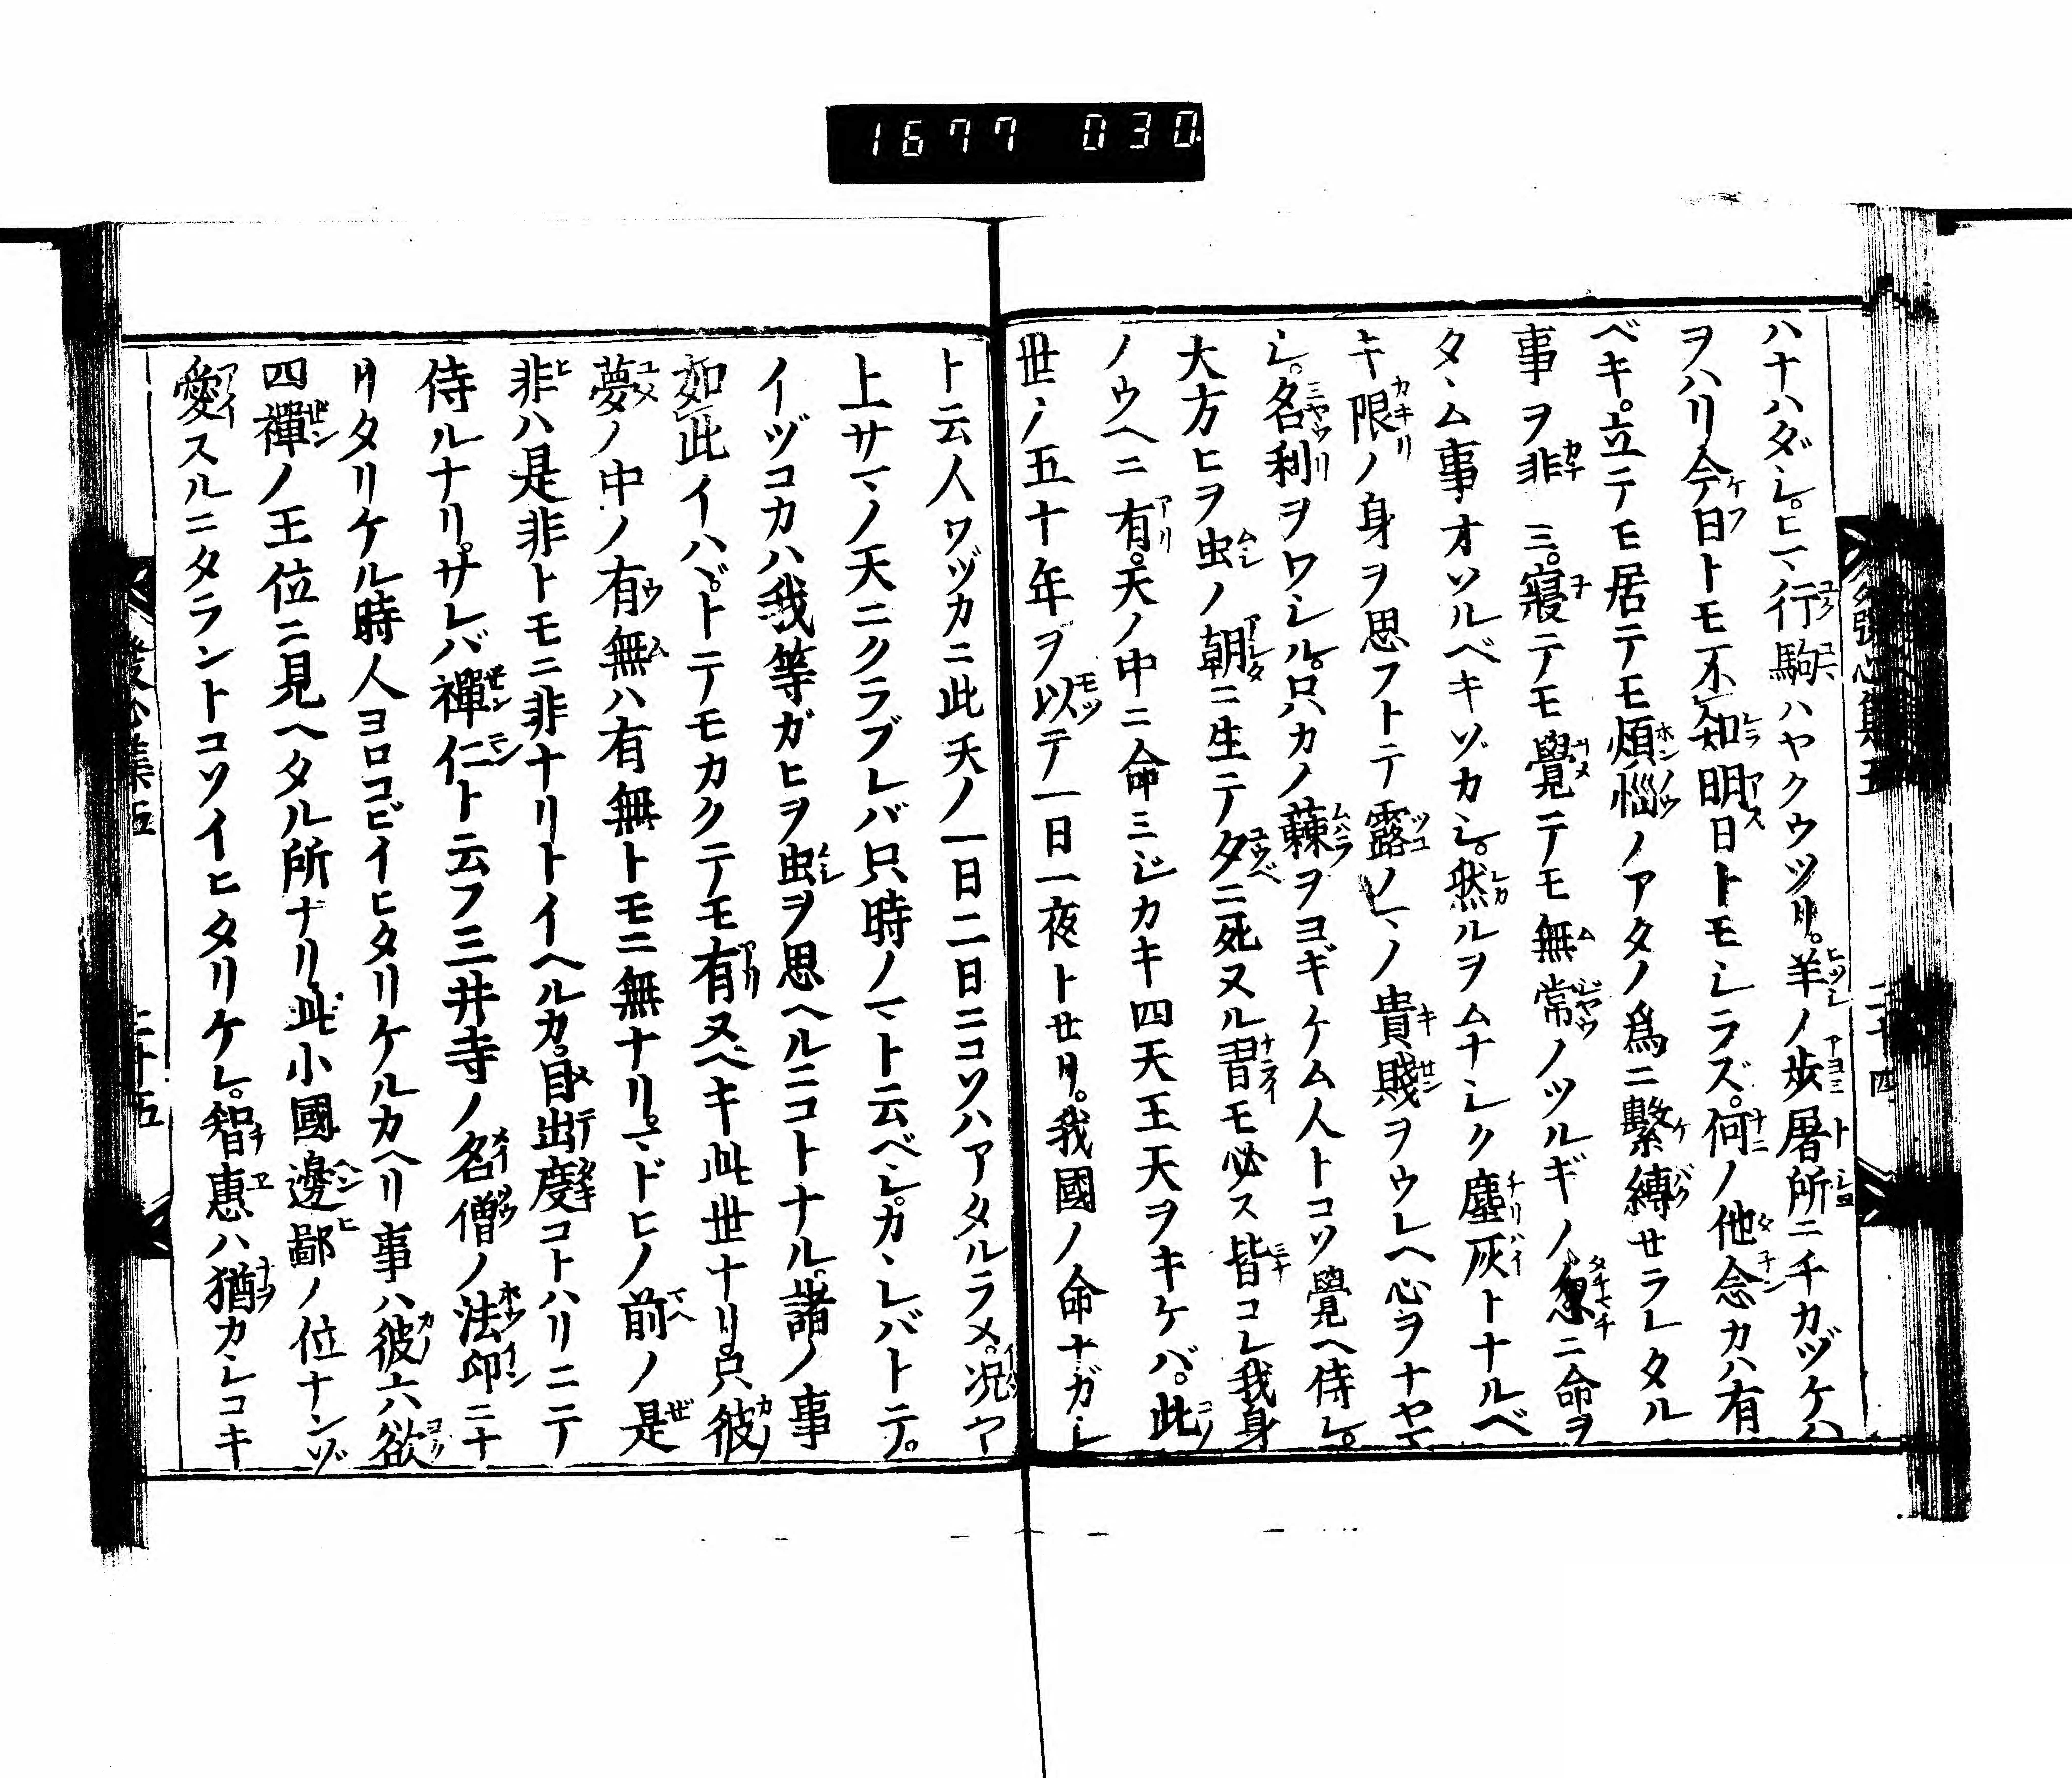 1677 030
ハナハダシ。ヒマ行駒ハヤクウツリ。羊ノ歩屠所ニチカヅケハ
ヲハリ今日トモ不知明日トモシラズ。何ノ他念カハ有
ベキ。立テモ居テモ煩惱ノアタノ爲ニ繫縛せラレタル
事ヲ非三。寢テモ覺テモ無常ノツルギノ忽ニ命ヲ
タヽム事オソルベキゾカシ。然ルヲムナシク塵灰トナルベ
キ限ノ身ヲ思フトテ露ノマノ貴賤ヲウレヘ心ヲナヤマ
シ。名利ヲワシル。只カノ蕀ヲヨギケム人トコソ覺ヘ侍レ。
大方ヒヲ虫ノ朝ニ生テ夕ニ死ヌル習モ必ス皆コレ我身
ノウヘニ有。天ノ中ニ命ミジカキ四天王天ヲキケバ。此
世ノ五十年ヲ以テ一日一夜トせリ。我國ノ命ナガシ
ト云人ワヅカニ此天ノ一日二日ニコソハアタルラメ。況ヤ
上サマノ天ニクラブレバ只時ノマト云ベシ。カヽレバトテ。
イヅコカハ我等ガヒヲ虫ヲ思ヘルニコトナル。諸ノ事
如此イハヾ。トテモカクテモ有ヌベキ此世ナリ。只彼
夢ノ中ノ有無ハ有無トモニ無ナリ。マドヒノ前ノ是
非ハ是非トモニ非ナリトイヘルカ。目出度コトハリニテ
侍ルナリ。サレバ禪仁ト云フ三井寺ノ名僧ノ法印ニナ
リタリケル時人ヨロコビイヒタリケルカヘリ事ハ彼六欲
四禪ノ王位ニ見ヘタル所ナリ。此小國邊鄙ノ位ナンゾ
愛スルニタラントコソイヒタリケレ。智惠ハ猶カシコキ